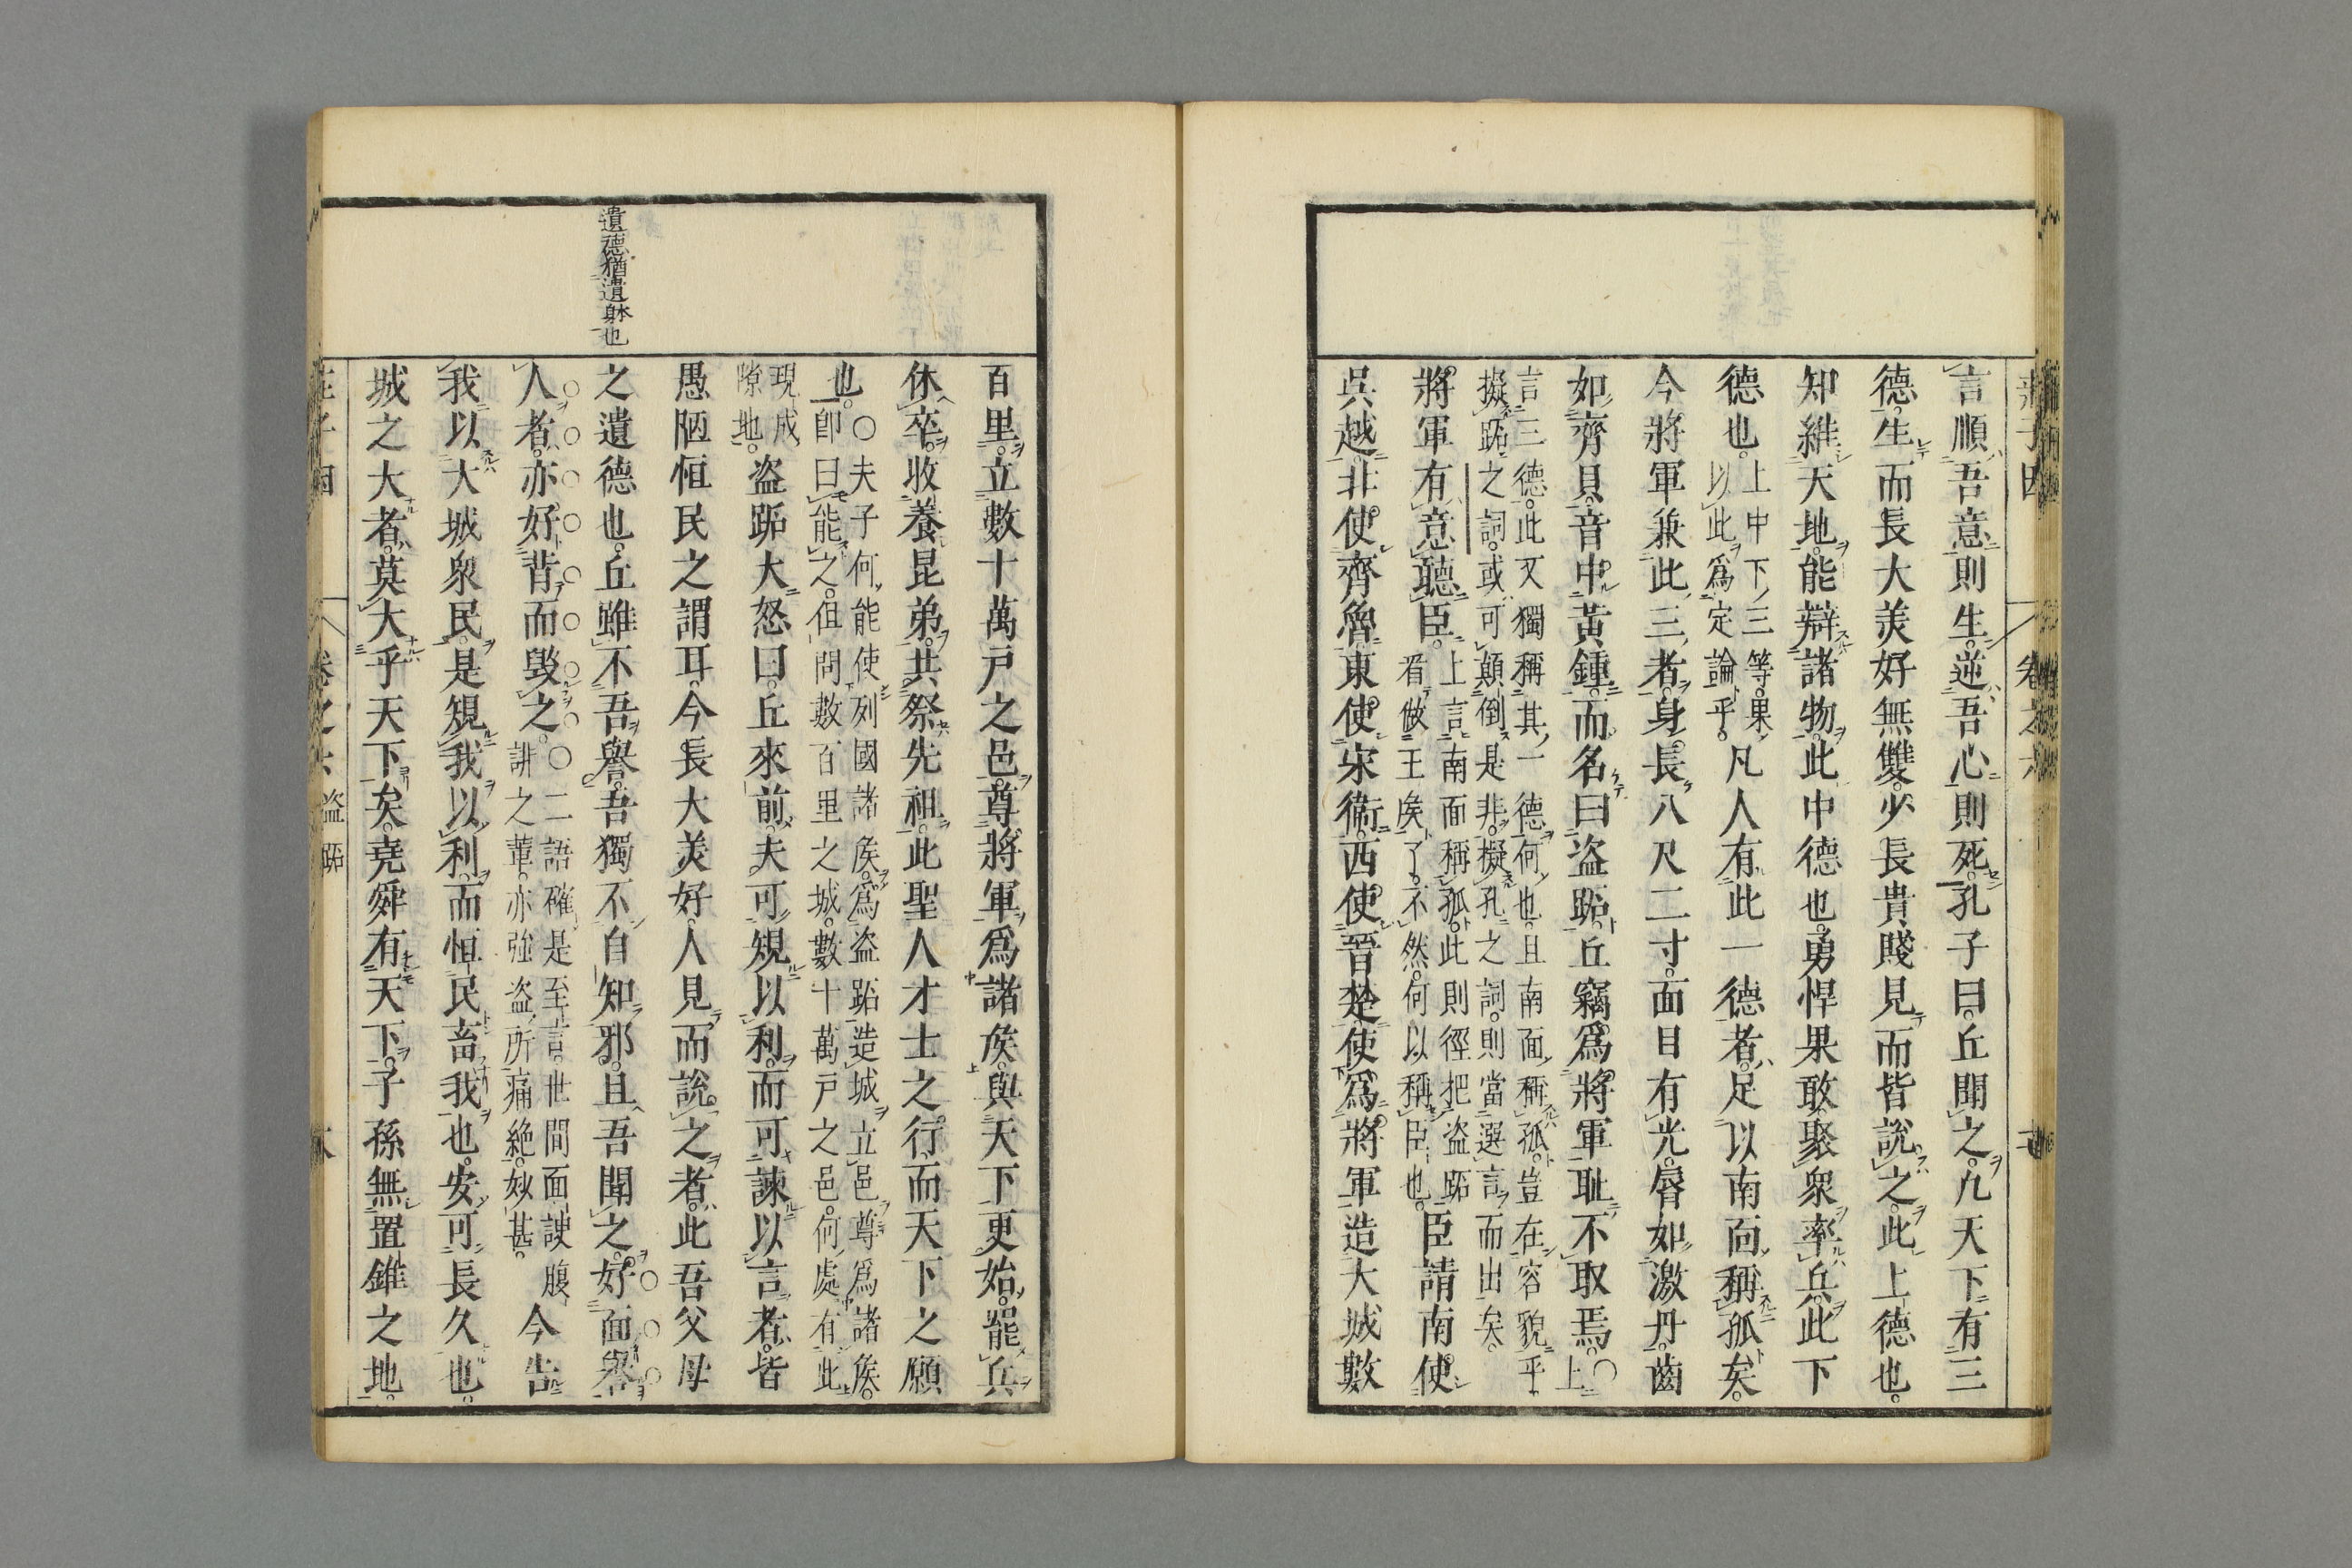 言順吾意則生。逆吾心則死。孔子曰。丘聞之。凡天下有三
德。生而長大美好無雙。少長貴賤見而皆說之。此上德也。
知維天地。能辯諸物。此中德也。勇悍果敢。聚衆率兵。此下
德也。
上中下三等。果
以此爲定論乎。
凡人有此一德者。足以南面稱孤矣。
今將軍兼此三者。身長八尺二寸。面目有光。脣如激丹。齒
如齊貝。音中黃鍾。而名曰盜跖。丘竊爲將軍耻不取焉。
○
上
言三德。此又獨稱其一德何也。且南面稱孤。豈在容貌乎
擬跖之詞。或可顛倒是非。擬孔之詞。則當選言而出矣。
將軍有意聽臣。
上言南面稱孤。此則徑把盜跖
看做王矦了。不然。何以稱臣也。
臣請南使
吳越。北使齊魯。東使宋衞。西使晉楚。使爲將軍造大城數
百里。立數十萬戸之邑。尊將軍爲諸矦。與天下更始。罷兵
休卒。收養昆弟。共祭先祖。此聖人才士之行。而天下之願
也。
○夫子何能使列國諸矦。爲盜跖造城立邑。尊爲諸矦。
卽曰能之。但問數百里之城。數十萬戸之邑。何處有此
現成
隙地。
盜跖大怒曰。丘來前。夫可規以利。而可諫以言者。皆
愚陋恒民之謂耳。今長大美好。人見而說之者。此吾父母
之遺德也。丘雖不吾譽。吾獨不自知邪。且吾聞之。好面譽
人者。亦好背而毀之。
○二語確是至言。世間面諛腹
誹之輩。亦強盜所痛絶。妙甚。
今告
我以大城衆民。是規我以利。而恒民畜我也。安可長久也。
城之大者。莫大乎天下矣。堯舜有天下。子孫無置錐之地。
遺德猶遺躰也